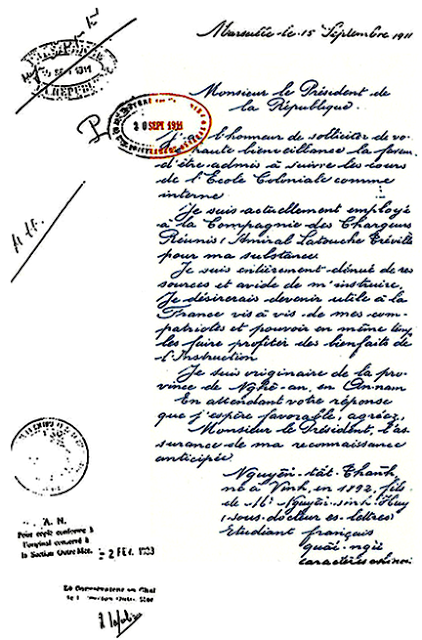 Marseille le 15 Septembre 1911
Monsieur le Président de
la République.
J'ai l'honneur de solliciter de vo-
tre haute bienveillance la faveur
d'être admis à suivre les cours
de l'Ecole Coloniale comme
interne.
Je suis actuellement employé
à la Compagnie des Chargeurs
Réunis, Amiral Latouche Tréville
pour ma substance.
Je suis entièrement dénué de res
sources et avide de m'instruire.
Je désirerais devenir utile à la
France vis à vis de mes com-
patriotes et pouvoir en même temps
les faire profiter des bienfaits de
l'Instruction.
Je suis originaire de la pro-
vince de Nghê-an, en Annam
En attendant votre réponse
que j'espère favorable, agréez,
Monsieur le Président, l'as
surance de ma reconnaissance
anticipée.
Nguyễn tât Thanh,
né à Vinh, en 1892, fils
de Mr Nguyễn sinh Huy
(sous docteur es lettres)
Etudiant français
quốc-ngữ
caractères chinois
20 SEPT 1911
A. N.
Pour copie conforme à
l'original conservé à
la Section Outre-Mer.
- 2 FEV.
Le Conservateur en Chef